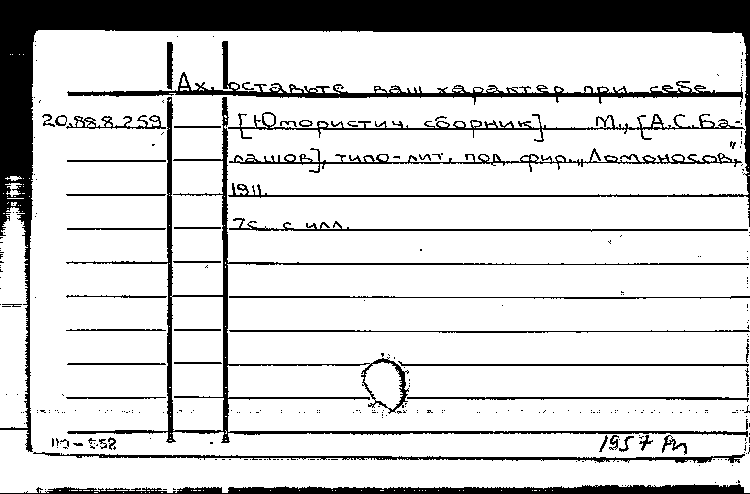 Ах, оставьте ваш характер при себе.
20.88.8.259 [Юмористич. сборник]. М., [А.С.Ба-
лашов], типо-лит. под фир. „Ломоносов",
1911.
7с. с илл.
110-552 1957